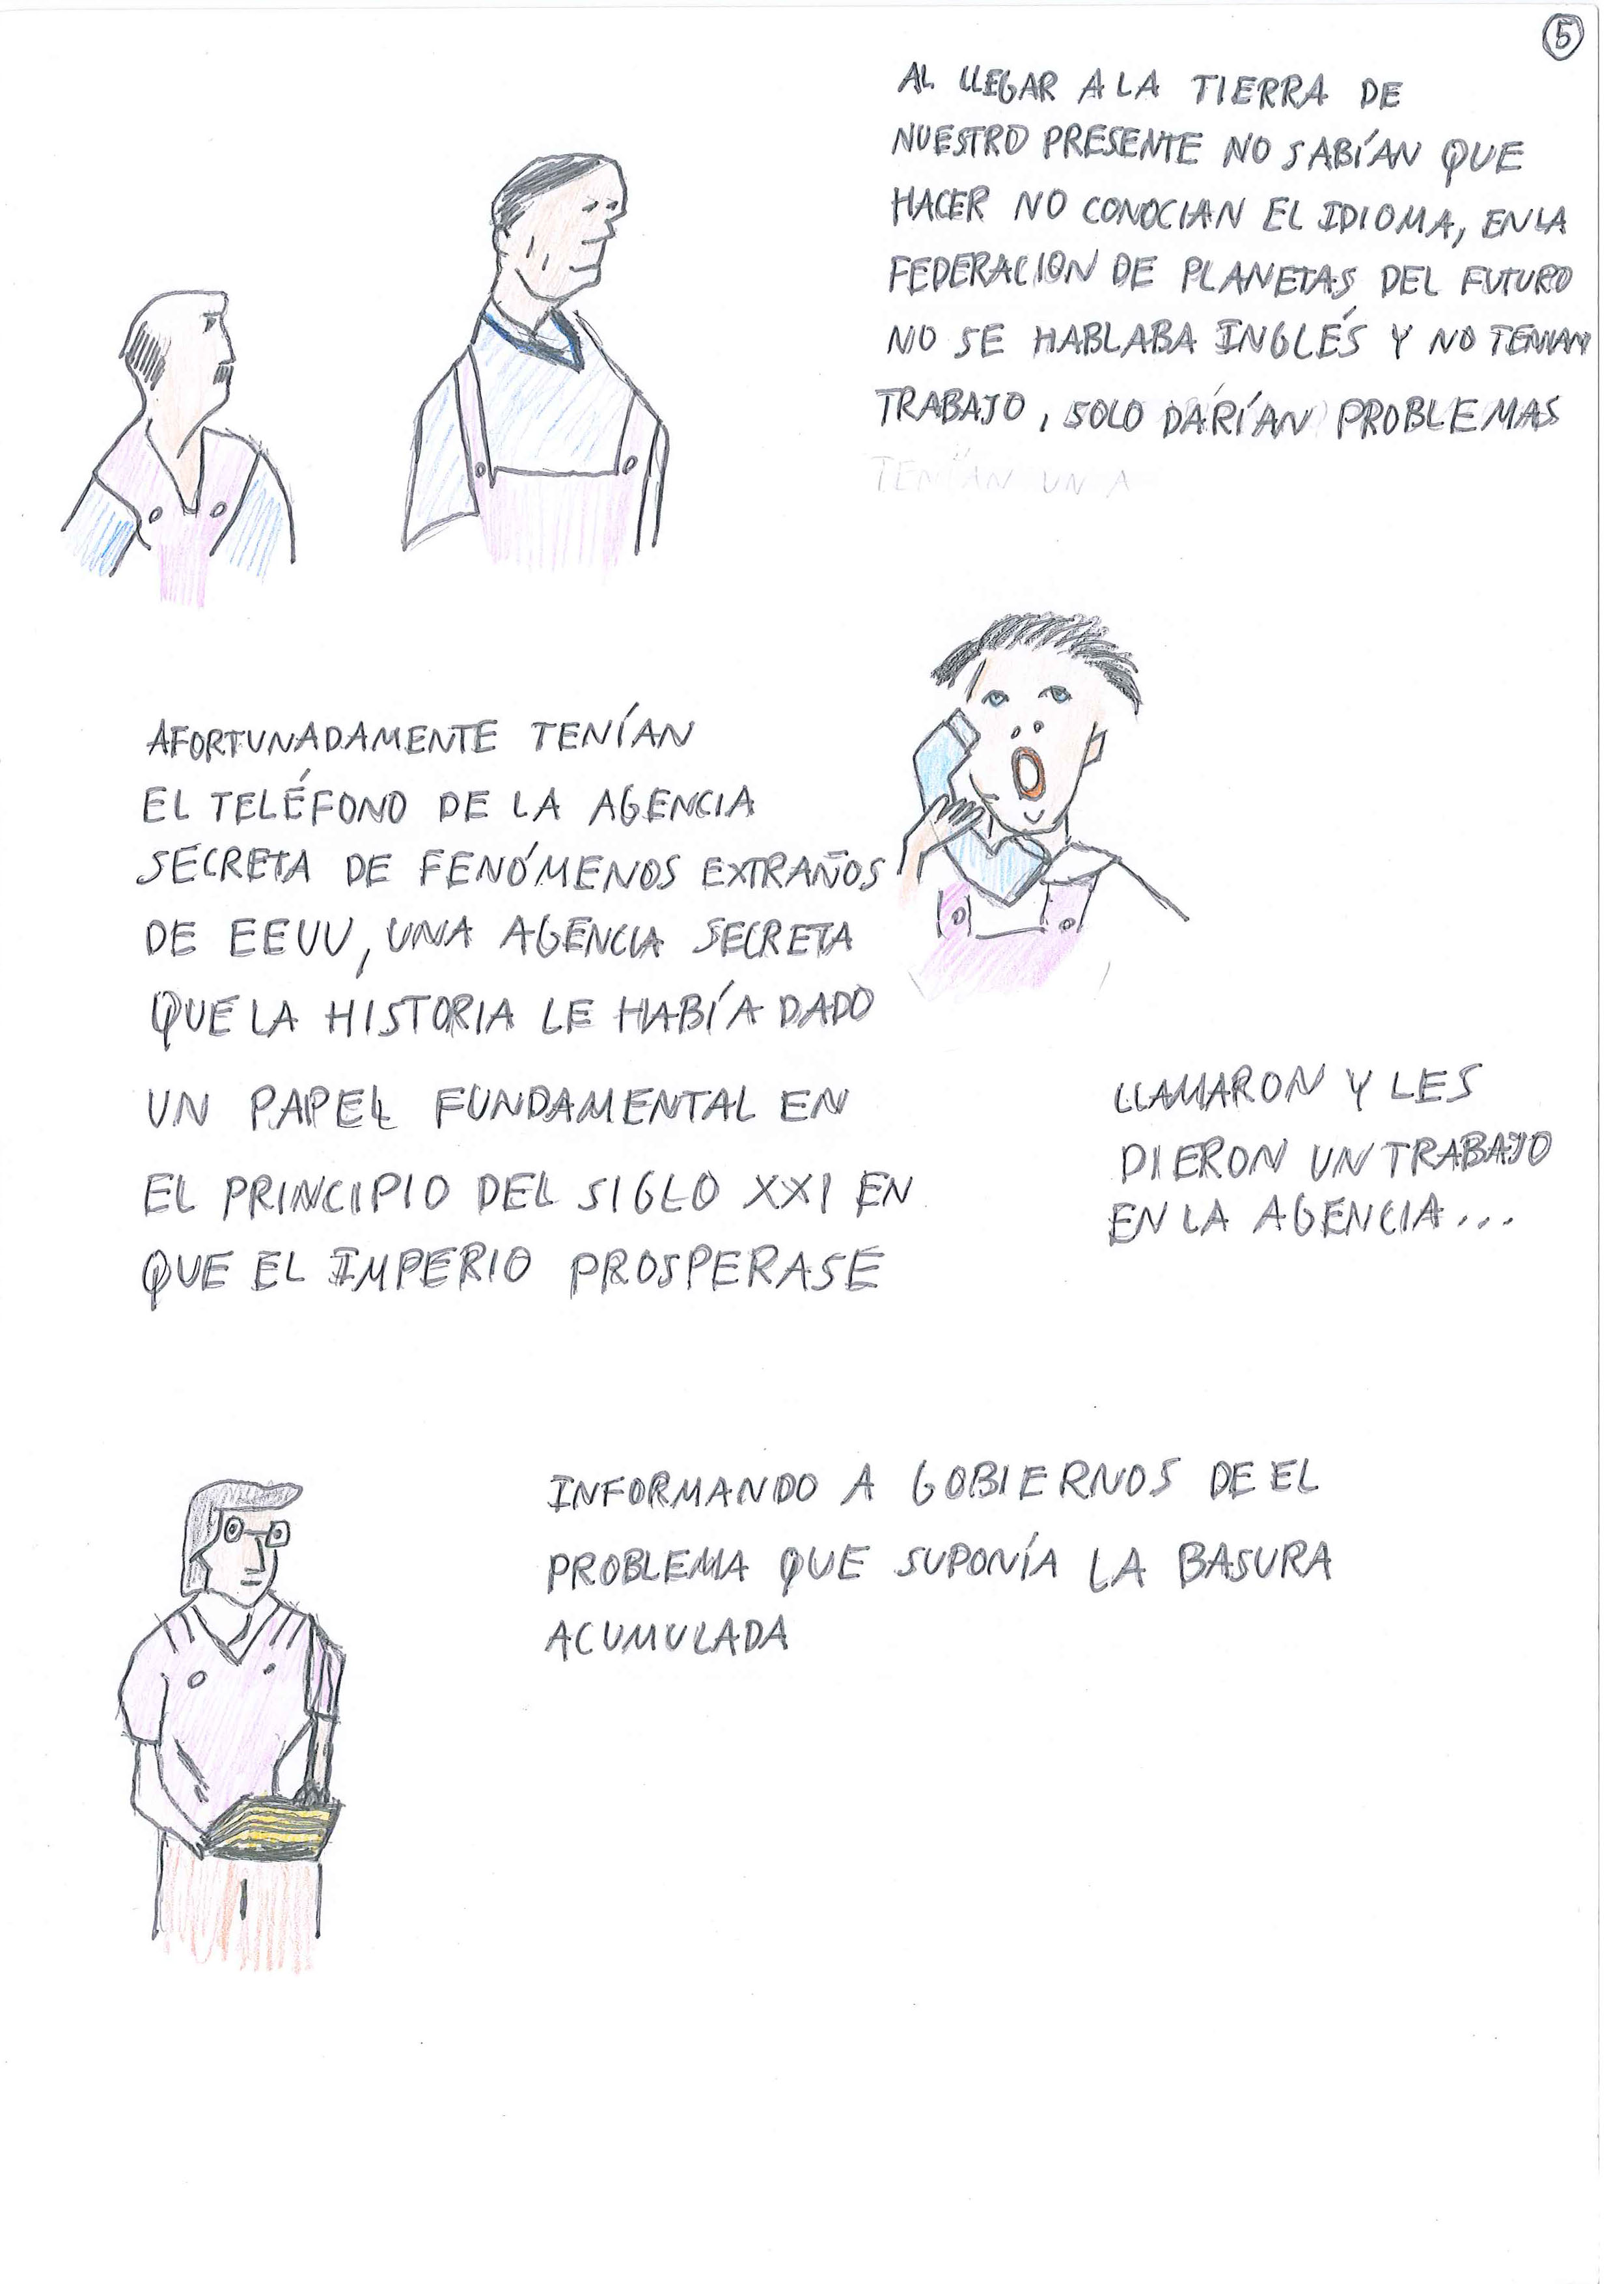 5
AL LLEGAR A LA TIERRA DE
NUESTRO PRESENTE NO SABÍAN QUE
HACER NO CONOCIAN EL IDIOMA, EN LA
FEDERACION DE PLANETAS DEL FUTURO
NO SE HABLABA INGLÉS Y NO TENIAN
TRABAJO, SOLO DARÍAN PROBLEMAS
TENÍAN UN A
AFORTUNADAMENTE TENÍAN
EL TELÉFONO DE LA AGENCIA
SECRETA DE FENÓMENOS EXTRAÑOS
DE EEUU, UNA AGENCIA SECRETA
QUE LA HISTORIA LE HABÍA DADO
UN PAPEL FUNDAMENTAL EN
EL PRINCIPIO DEL SIGLO XXI EN
QUE EL IMPERIO PROSPERASE
LLAMARON Y LES
DIERON UN TRABAJO
EN LA AGENCIA...
INFORMANDO A GOBIERNOS DE EL
PROBLEMA QUE SUPONÍA LA BASURA
ACUMULADA